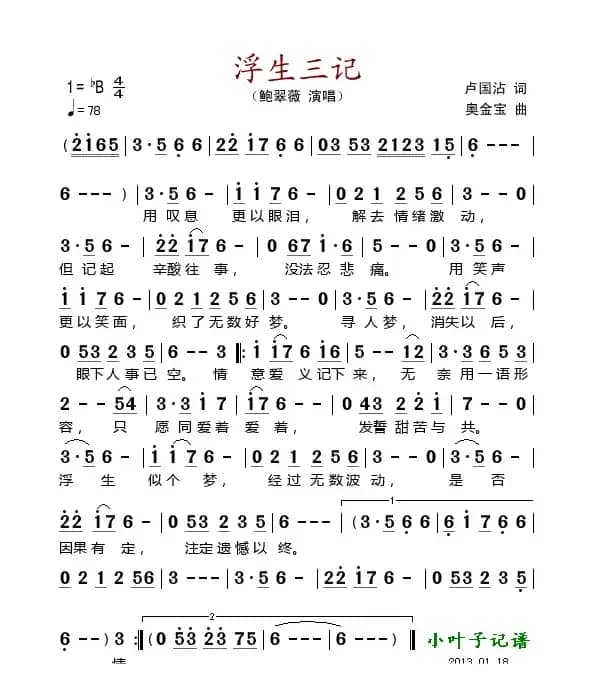 浮生三记
1=♭B 4/4
♩=78
(鲍翠薇 演唱)
卢国沾 词
奥金宝 曲
(2165 | 3·5 6 6 | 22 17 6 6 | 03 53 2123 15 | 6 - - - |
6 - - ) | 3·5 6 - | 1 17 6 - | 0 2 1 2 5 6 | 3 - - - |
用 叹息 更以眼泪, 解去 情绪激 动,
3·5 6 - | 22 17 6 - | 0 67 1·6 | 5 - - 0 | 3·5 6 - |
但 记起 辛酸往 事, 没法忍 悲 痛。 用 笑声
1 17 6 - | 0 2 1 2 5 6 | 3 - - - | 3·5 6 - | 22 17 6 - |
更以笑面, 织了无数好 梦。 寻 人梦, 消失以 后,
0 53 2 3 5 | 6 - - 3 |: 1 17 6 16 | 5 - - 12 | 3·6 5 53 |
眼下人事已 空。 情 意爱 义记下 来, 无 奈用一语形
2 - - 54 | 3·3 1 7 | 17 6 - - | 0 43 2 2 1 | 7 - - - |
容, 只 愿同爱着 爱 着, 发誓 甜苦与 共。
3·5 6 - | 22 17 6 - | 0 2 1 2 5 6 | 3 - - - | 3·5 6 - |
浮 生 似个 梦, 经过 无数波 动, 是 否
1
22 17 6 - | 0 53 2 3 5 | 6 - - - | (3·5 6 6 | 6 17 6 - |
因果有 定, 注定遗憾以 终。
0 2 1 2 56 | 3 - - - | 3·5 6 - | 22 17 6 - | 0 53 2 3 5 |
2
6 - ) 3 :| (0 53 23 75 | 6 - - - | 6 - - - ) ‖
情
小叶子记谱
2013.01.18